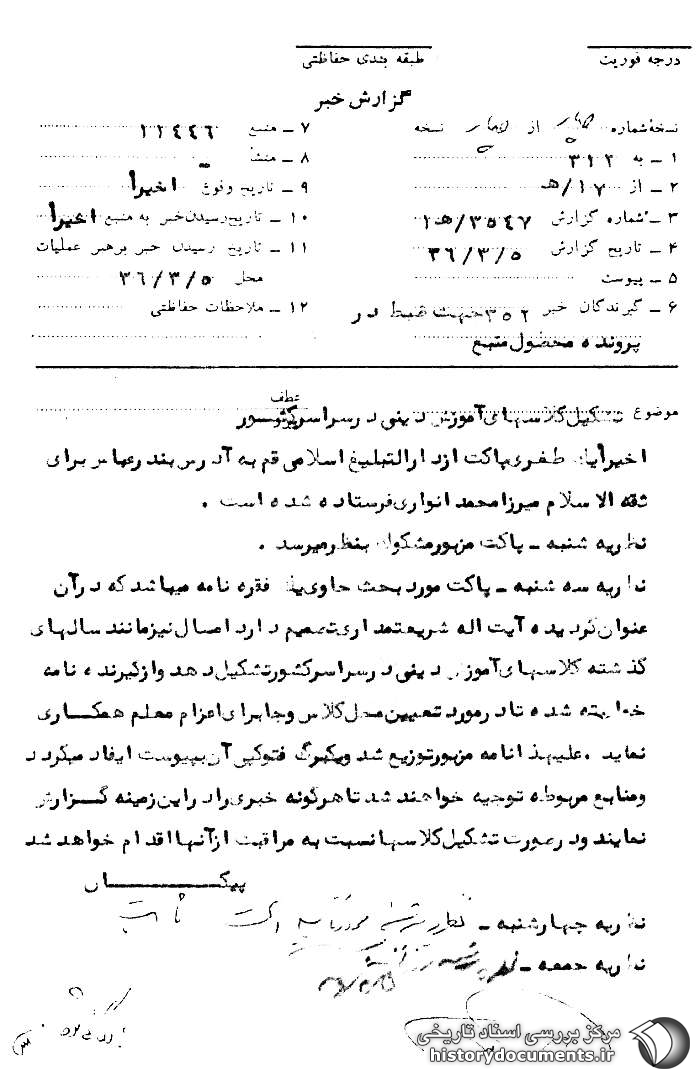 درجه فوریت
طبقه بندی حفاظتی
گزارش خبر
نسخهٔ شماره چهار از چهار نسخه
۱ ـ به ۳۱۲
۲ ـ از ۱۷/هـ
۳ ـ شماره گزارش ۳۵۴۷/هـ۱
۴ ـ تاریخ گزارش ۳۶/۳/۵
۵ ـ پیوست
۶ ـ گیرندگان خبر ۳۵۲ جهت ضبط در
پرونده محصول منبع
۷ ـ منبع ۱۲۴۴۶
۸ ـ منشأ ـ
۹ ـ تاریخ وقوع اخیراً
۱۰ ـ تاریخ رسیدن خبر به منبع اخیراً
۱۱ ـ تاریخ رسیدن خبر برهبر عملیات
محل ۳۶/۳/۵
۱۲ ـ ملاحظات حفاظتی
عطف
موضوع تشکیل کلاسهای آموزش دینی در سراسر کشور
اخیراً یک طغری پاکت از دارالتبلیغ اسلامی قم به آدرس بندرعباس برای
ثقه الاسلام میرزا محمد انواری فرستاده شده است .
نظریه شنبه ـ پاکت مزبور مشکوک بنظر میرسد .
نظریه سه شنبه ـ پاکت مورد بحث حاوی یک فقره نامه میباشد که در آن
عنوان گردیده آیت اله شریعتمداری تصمیم دارد امسال نیز مانند سالهای
گذشته کلاسهای آموزش دینی در سراسر کشور تشکیل دهد و از گیرنده نامه
خواسته شده تا در مورد تعیین محل کلاس و جا برای اعزام معلم همکاری
نماید . علیهذا نامه مزبور توزیع شد و یکبرگ فتوکپی آن بپیوست ایفاد میگردد
و منابع مربوطه توجیه خواهند شد تا هرگونه خبری را در این زمینه گزارش
نمایند و در صورت تشکیل کلاسها نسبت به مراقبت از آنها اقدام خواهد شد
پیکان
نظریه چهارشنبه ـ نظریه سه شنبه مورد تأیید است
نظریه جمعه ـ
مرکز بررسی اسناد تاریخی
historydocuments.ir